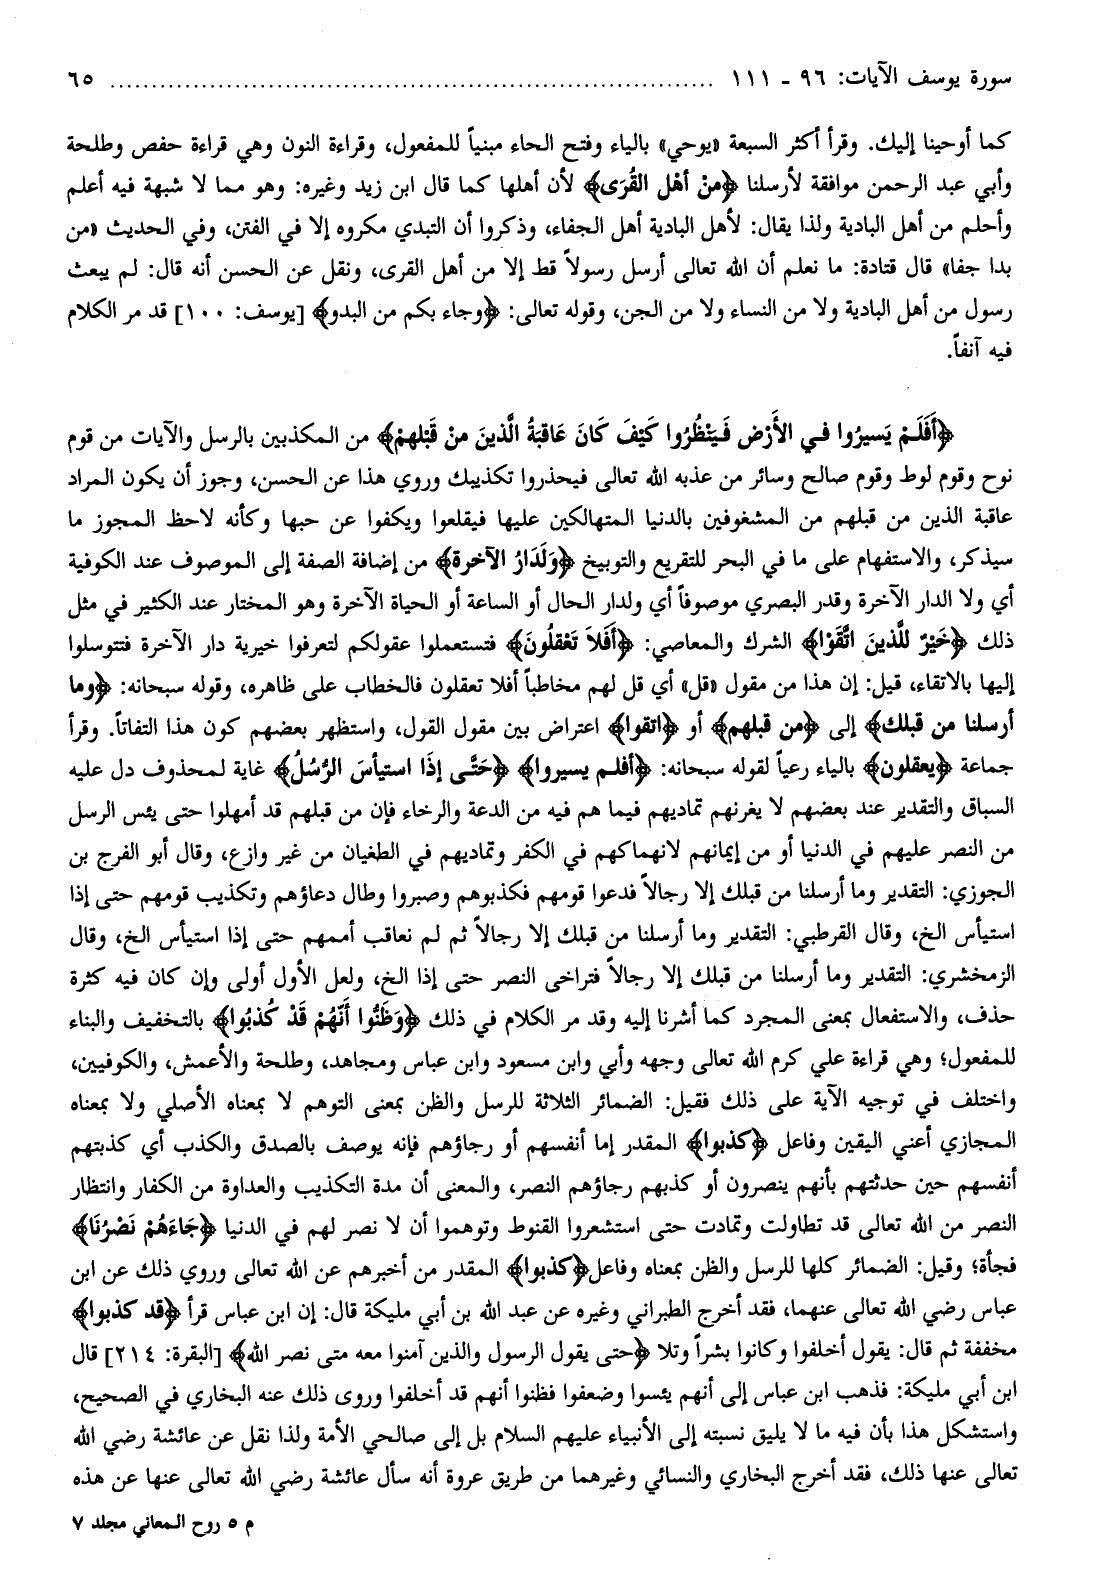 سورة يوسف الآيات: ٩٦ ـ ١١١ ........................................................................ ٦٥
كما أوحينا إليك. وقرأ أكثر السبعة «يوحي» بالياء وفتح الحاء مبنياً للمفعول، وقراءة النون وهي قراءة حفص وطلحة
وأبي عبد الرحمن موافقة لأرسلنا ﴿منْ أهْل القُرَى﴾ لأن أهلها كما قال ابن زيد وغيره: وهو مما لا شبهة فيه أعلم
وأحلم من أهل البادية ولذا يقال: لأهل البادية أهل الجفاء، وذكروا أن التبدي مكروه إلا في الفتن، وفي الحديث «من
بدا جفا» قال قتادة: ما نعلم أن الله تعالى أرسل رسولاً قط إلا من أهل القرى، ونقل عن الحسن أنه قال: لم يبعث
رسول من أهل البادية ولا من النساء ولا من الجن، وقوله تعالى: ﴿وجاء بكم من البدو﴾ [يوسف: ١٠٠] قد مر الكلام
فيه آنفاً.
﴿أَفَلَمْ يَسيرُوا في الأَرْض فَيَنْظُرُوا كَيْفَ كَانَ عَاقبَةُ الَّذينَ منْ قَبْلهمْ﴾ من المكذبين بالرسل والآيات من قوم
نوح وقوم لوط وقوم صالح وسائر من عذبه الله تعالى فيحذروا تكذيبك وروي هذا عن الحسن، وجوز أن يكون المراد
عاقبة الذين من قبلهم من المشغوفين بالدنيا المتهالكين عليها فيقلعوا ويكفوا عن حبها وكأنه لاحظ المجوز ما
سيذكر، والاستفهام على ما في البحر للتقريع والتوبيخ ﴿وَلَدَارُ الآخرة﴾ من إضافة الصفة إلى الموصوف عند الكوفية
أي ولا الدار الآخرة وقدر البصري موصوفاً أي ولدار الحال أو الساعة أو الحياة الآخرة وهو المختار عند الكثير في مثل
ذلك ﴿خَيْرٌ للَّذينَ اتَّقَوْا﴾ الشرك والمعاصي: ﴿أَفَلاَ تَعْقلُونَ﴾ فتستعملوا عقولكم لتعرفوا خيرية دار الآخرة فتتوسلوا
إليها بالاتقاء، قيل: إن هذا من مقول «قل» أي قل لهم مخاطباً أفلا تعقلون فالخطاب على ظاهره، وقوله سبحانه: ﴿وما
أرسلنا من قبلك﴾ إلى ﴿من قبلهم﴾ أو ﴿اتقوا﴾ اعتراض بين مقول القول، واستظهر بعضهم كون هذا التفاتاً. وقرأ
جماعة ﴿يعقلون﴾ بالياء رعياً لقوله سبحانه: ﴿أفلم يسيروا﴾ ﴿حَتَّى إذَا استيأسَ الرُّسُلُ﴾ غاية لمحذوف دل عليه
السباق والتقدير عند بعضهم لا يغرنهم تماديهم فيما هم فيه من الدعة والرخاء فإن من قبلهم قد أمهلوا حتى يئس الرسل
من النصر عليهم في الدنيا أو من إيمانهم لانهماكهم في الكفر وتماديهم في الطغيان من غير وازع، وقال أبو الفرج بن
الجوزي: التقدير وما أرسلنا من قبلك إلا رجالاً فدعوا قومهم فكذبوهم وصبروا وطال دعاؤهم وتكذيب قومهم حتى إذا
استيأس الخ، وقال القرطبي: التقدير وما أرسلنا من قبلك إلا رجالاً ثم لم نعاقب أممهم حتى إذا استيأس الخ، وقال
الزمخشري: التقدير وما أرسلنا من قبلك إلا رجالاً فتراخى النصر حتى إذا الخ، ولعل الأول أولى وإن كان فيه كثرة
حذف، والاستفعال بمعنى المجرد كما أشرنا إليه وقد مر الكلام في ذلك ﴿وَظَنُّوا أَنَّهُمْ قَدْ كُذبُوا﴾ بالتخفيف والبناء
للمفعول؛ وهي قراءة علي كرم الله تعالى وجهه وأبي وابن مسعود وابن عباس ومجاهد، وطلحة والأعمش، والكوفيين،
واختلف في توجيه الآية على ذلك فقيل: الضمائر الثلاثة للرسل والظن بمعنى التوهم لا بمعناه الأصلي ولا بمعناه
المجازي أعني اليقين وفاعل ﴿كذبوا﴾ المقدر إما أنفسهم أو رجاؤهم فإنه يوصف بالصدق والكذب أي كذبتهم
أنفسهم حين حدثتهم بأنهم ينصرون أو كذبهم رجاؤهم النصر، والمعنى أن مدة التكذيب والعداوة من الكفار وانتظار
النصر من الله تعالى قد تطاولت وتمادت حتى استشعروا القنوط وتوهموا أن لا نصر لهم في الدنيا ﴿جَاءَهُمْ نَصْرُنَا﴾
فجأة؛ وقيل: الضمائر كلها للرسل والظن بمعناه وفاعل ﴿كذبوا﴾ المقدر من أخبرهم عن الله تعالى وروي ذلك عن ابن
عباس رضي الله تعالى عنهما، فقد أخرج الطبراني وغيره عن عبد الله بن أبي مليكة قال: إن ابن عباس قرأ ﴿قد كذبوا﴾
مخففة ثم قال: يقول أخلفوا وكانوا بشراً وتلا ﴿حتى يقول الرسول والذين آمنوا معه متى نصر الله﴾ [البقرة: ٢١٤] قال
ابن أبي مليكة: فذهب ابن عباس إلى أنهم يئسوا وضعفوا فظنوا أنهم قد أخلفوا وروى ذلك عنه البخاري في الصحيح،
واستشكل هذا بأن فيه ما لا يليق نسبته إلى الأنبياء عليهم السلام بل إلى صالحي الأمة ولذا نقل عن عائشة رضي الله
تعالى عنها ذلك، فقد أخرج البخاري والنسائي وغيرهما من طريق عروة أنه سأل عائشة رضي الله تعالى عنها عن هذه
م ٥ روح المعاني مجلد ٧